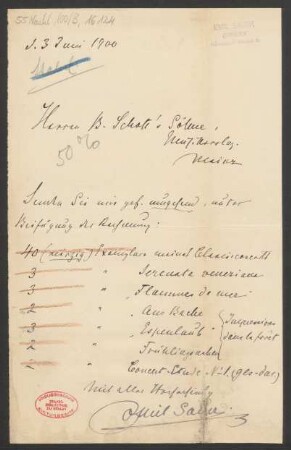 55 Nachl. 100/B,
d. 3 Juni 1900
Herren B. Schott's Söhne,
Musikverlag
Mainz
50 %
Senden Sie mir gef. umgehend unter
Beifügung der Rechnung
40 (vierzig) Exemplare meines Clavierconcerts
3 " Serenata veneziana
3 " "Flammes de mer
2 " "Am Bache
3 " "Espenlaub"
2 " "Frühlingszauber
2 " Concert-Etude No 1 (Ges-dur)
Mit aller Hochachtung
Emil Sauer